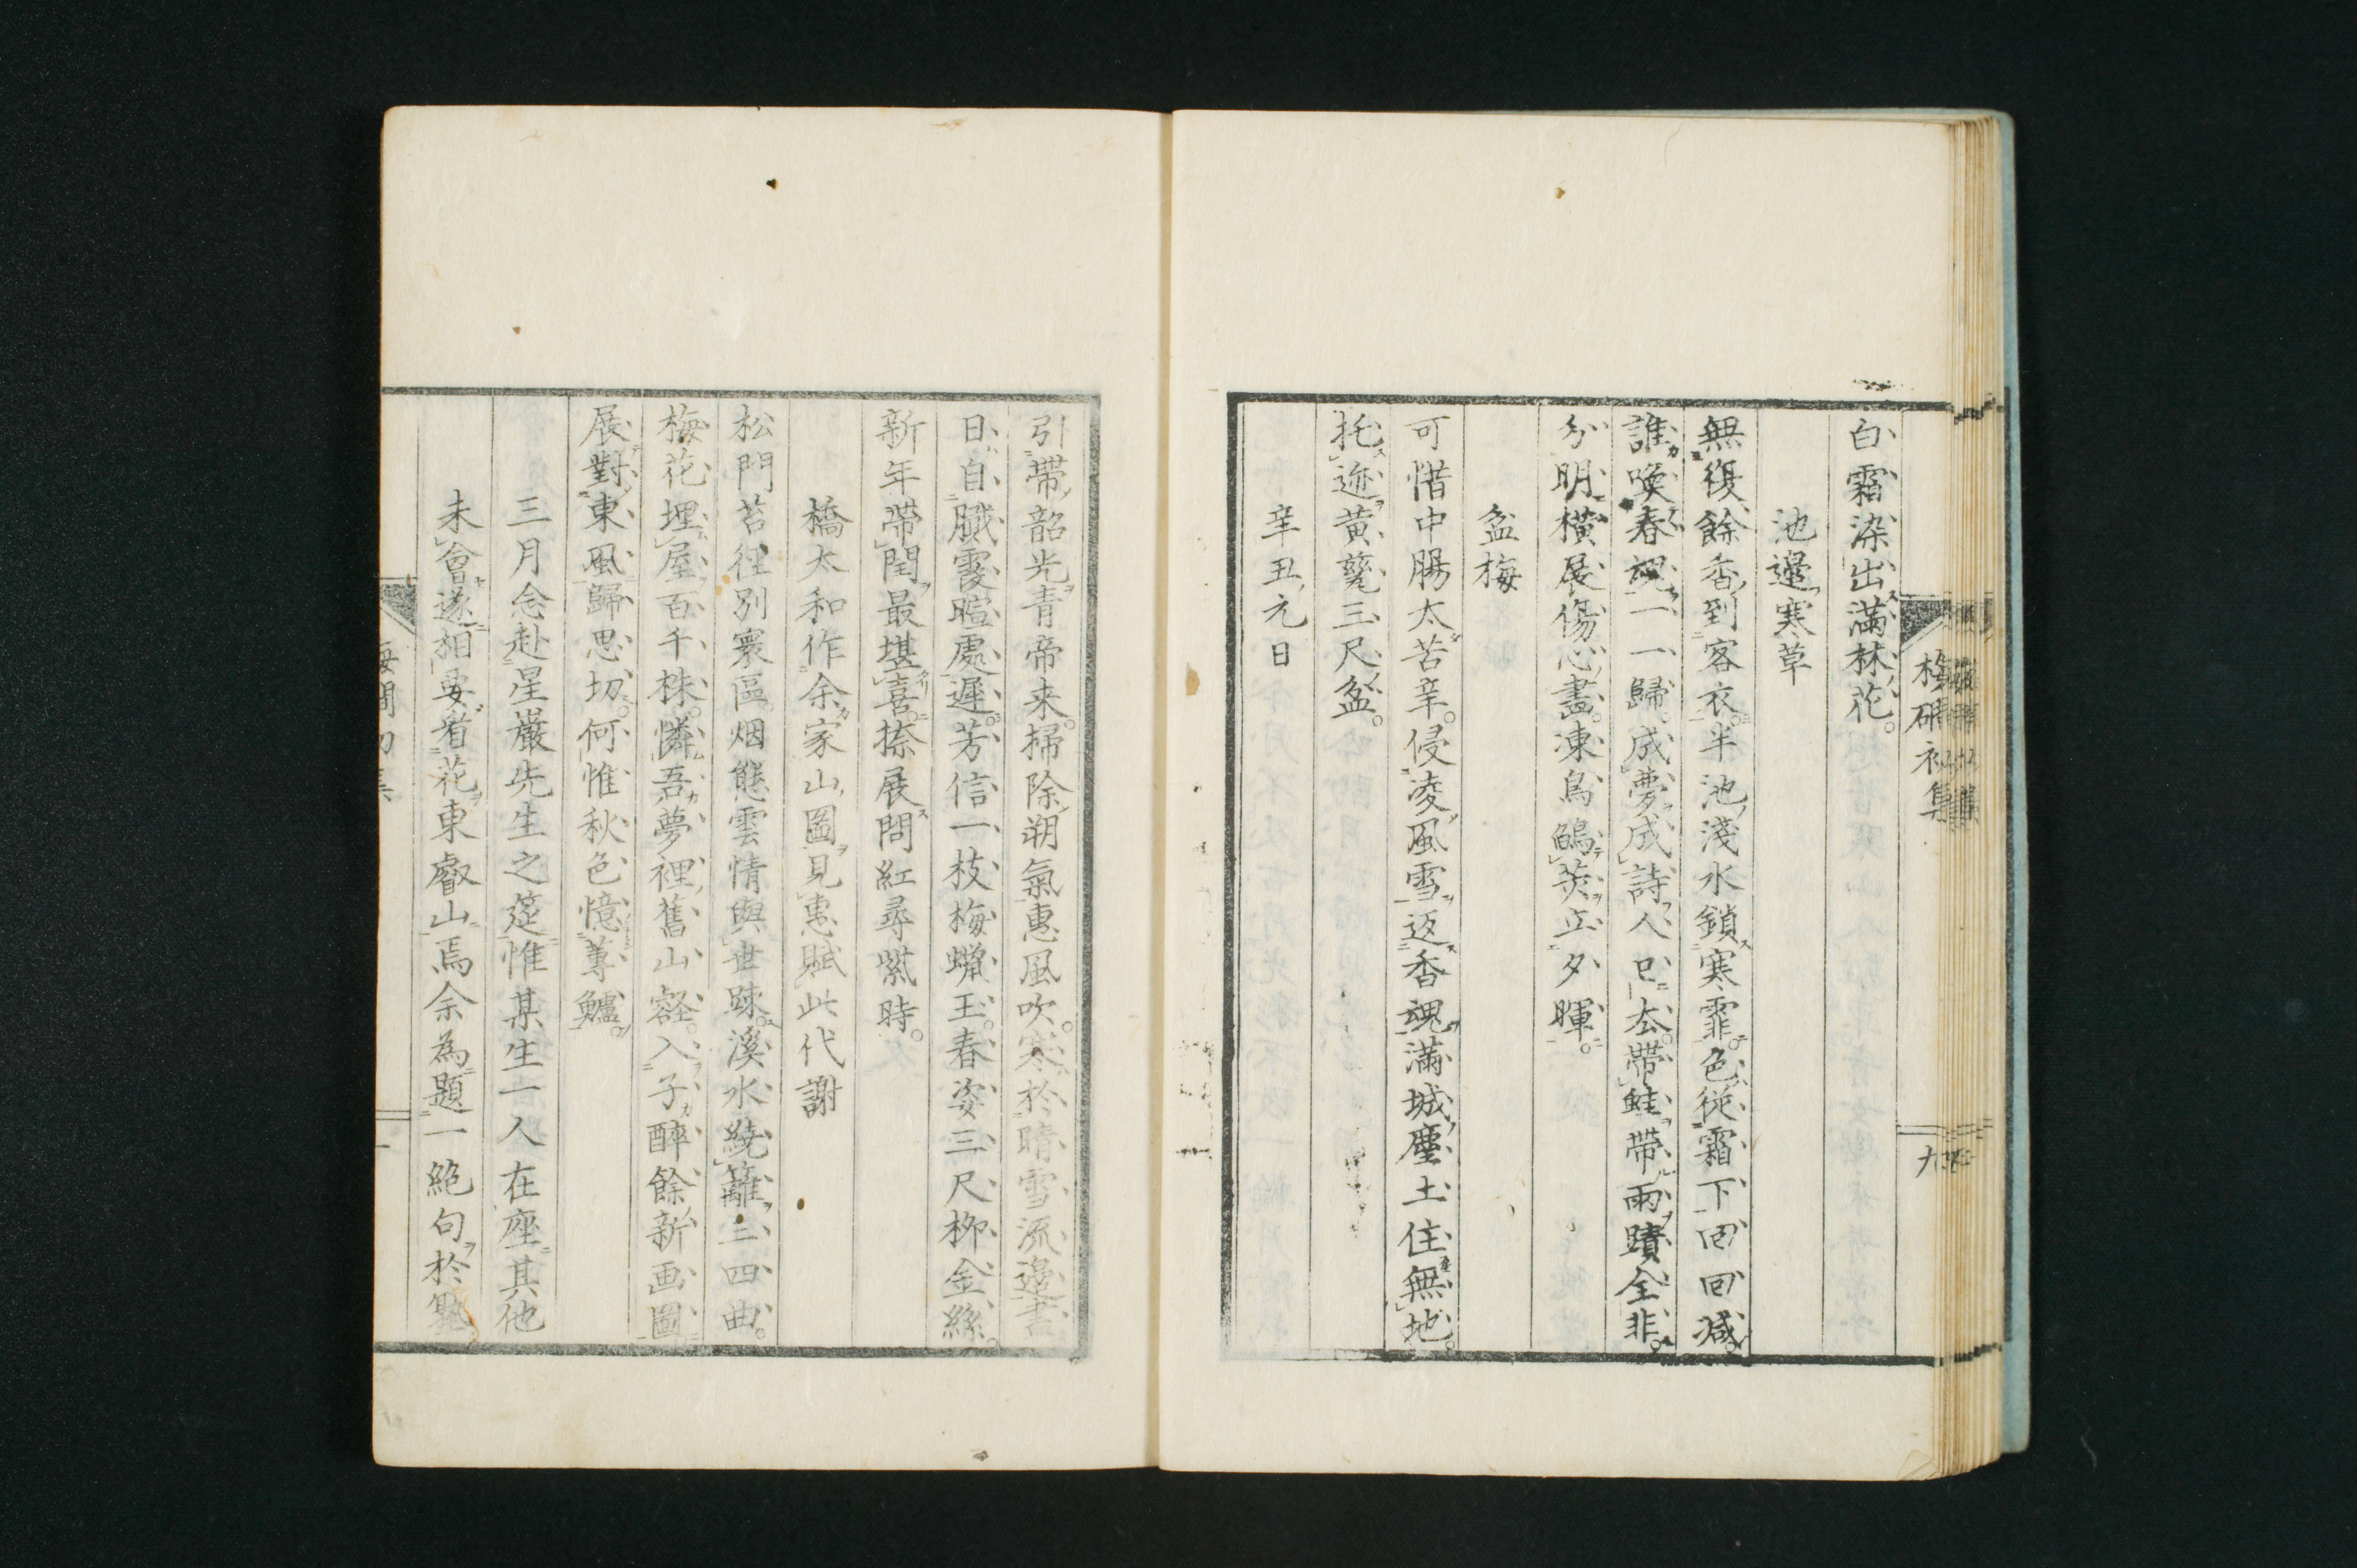 白霜染出滿林花。
池邊寒草
無復餘香到客衣。半池淺水鎖寒霏。色從霜下回回減。
誰喚春魂一一歸。成夢成詩人已去。帶蛙帶雨蹟全非。
分明橫展傷心畫。凍鳥鷦立夕暉。
盆梅
可惜中腸太苦辛。侵凌風雪返香魂。滿城塵土住無地。
托迹黄甕三尺盆。
辛丑元日
梅磵初集
九
引帶韶光青帝来。掃除朔氣惠風吹。寒於晴雪流邊
日。自臘霞暄處遲。芳信一枝梅蠟玉。春姿三尺柳金絲。
新年帶閏最堪喜。展問紅尋紫時。
橋太和作余家山圖見惠賦此代謝
松門苔徑別寰區。烟態雲情與世踈。溪水繞籬三四曲。
梅花埋屋百千株。憐吾夢裡舊山壑。入子醉餘新画圖
展對東風歸思切。何惟秋色憶蓴鱸。
三月念赴星巖先生之筵惟某生一人在座其他
未會遂相要看花東叡山焉余為題一絶句於